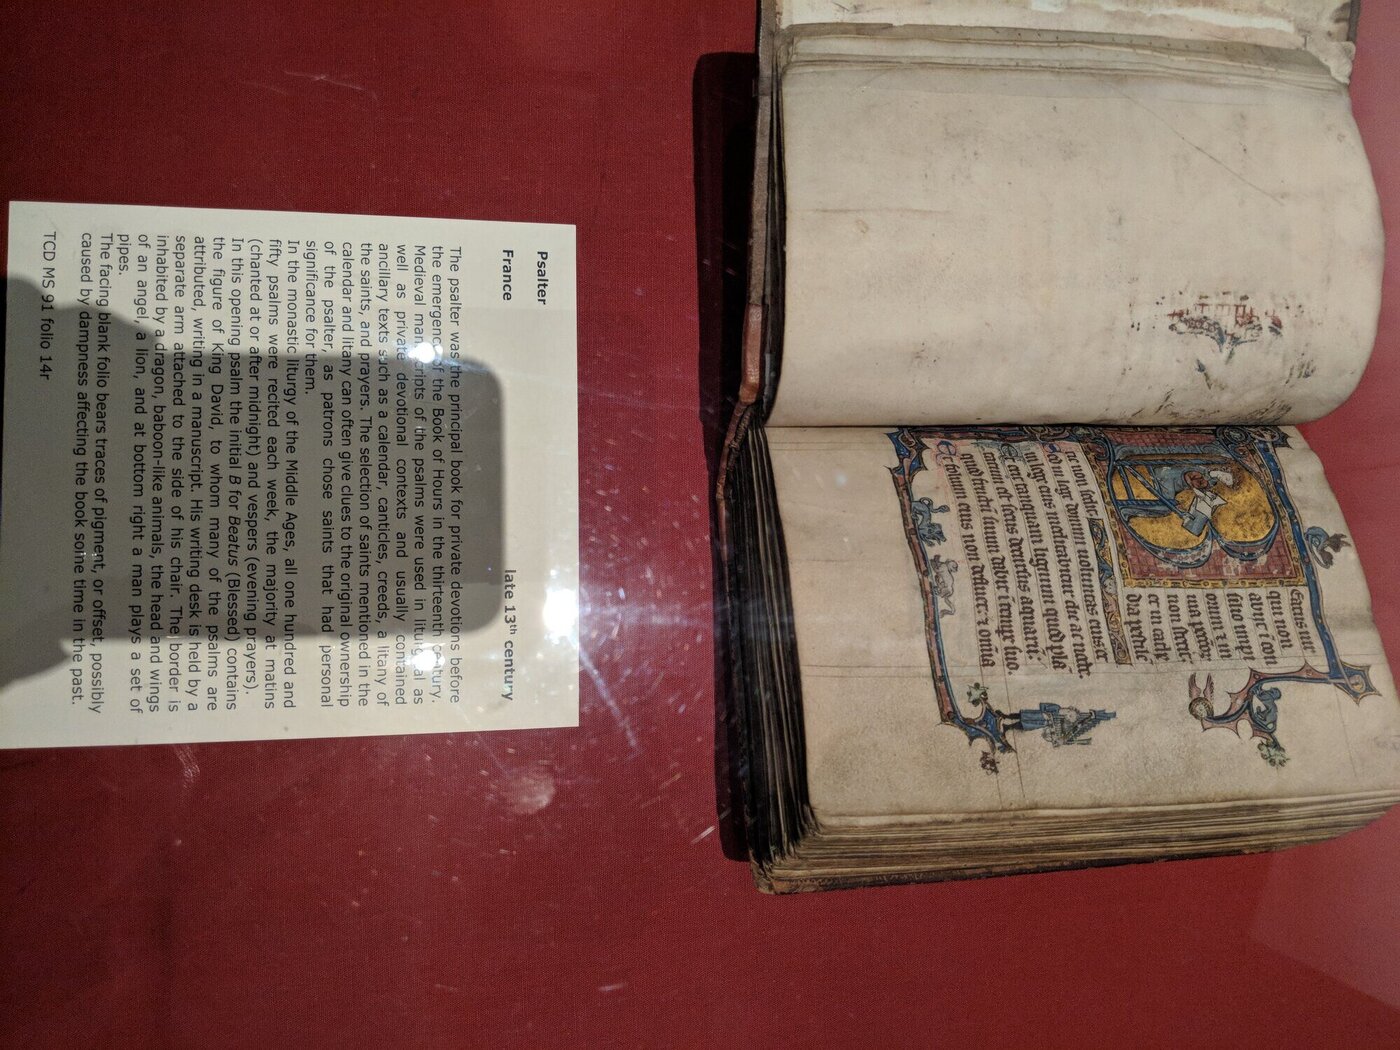 Psalter
France late 13th century
The psalter was the principal book for private devotions before
the emergence of the Book of Hours in the thirteenth century.
Medieval manuscripts of the psalms were used in liturgical as
well as private devotional contexts and usually contained
ancillary texts such as a calendar, canticles, creeds, a litany of
the saints, and prayers. The selection of saints mentioned in the
calendar and litany can often give clues to the original ownership
of the psalter, as patrons chose saints that had personal
significance for them.
In the monastic liturgy of the Middle Ages, all one hundred and
fifty psalms were recited each week, the majority at matins
(chanted at or after midnight) and vespers (evening prayers).
In this opening psalm the initial B for Beatus (Blessed) contains
the figure of King David, to whom many of the psalms are
attributed, writing in a manuscript. His writing desk is held by a
separate arm attached to the side of his chair. The border is
inhabited by a dragon, baboon-like animals, the head and wings
of an angel, a lion, and at bottom right a man plays a set of
pipes.
The facing blank folio bears traces of pigment, or offset, possibly
caused by dampness affecting the book some time in the past.
TCD MS 91 folio 14r
Beatus uir
qui non
abiit i con
silio impi
orum & in
uia
non stetit:
et in cathe
dra pestile
tie non sedit
Set in lege domini uoluntas eius et
in lege eius meditabitur die ac nocte.
Et erit tanquam lignum quod pla
tatum est secus decursus aquarū:
quod fructū suum dabit tempr suo.
Et folium eius non defluet: & omnia